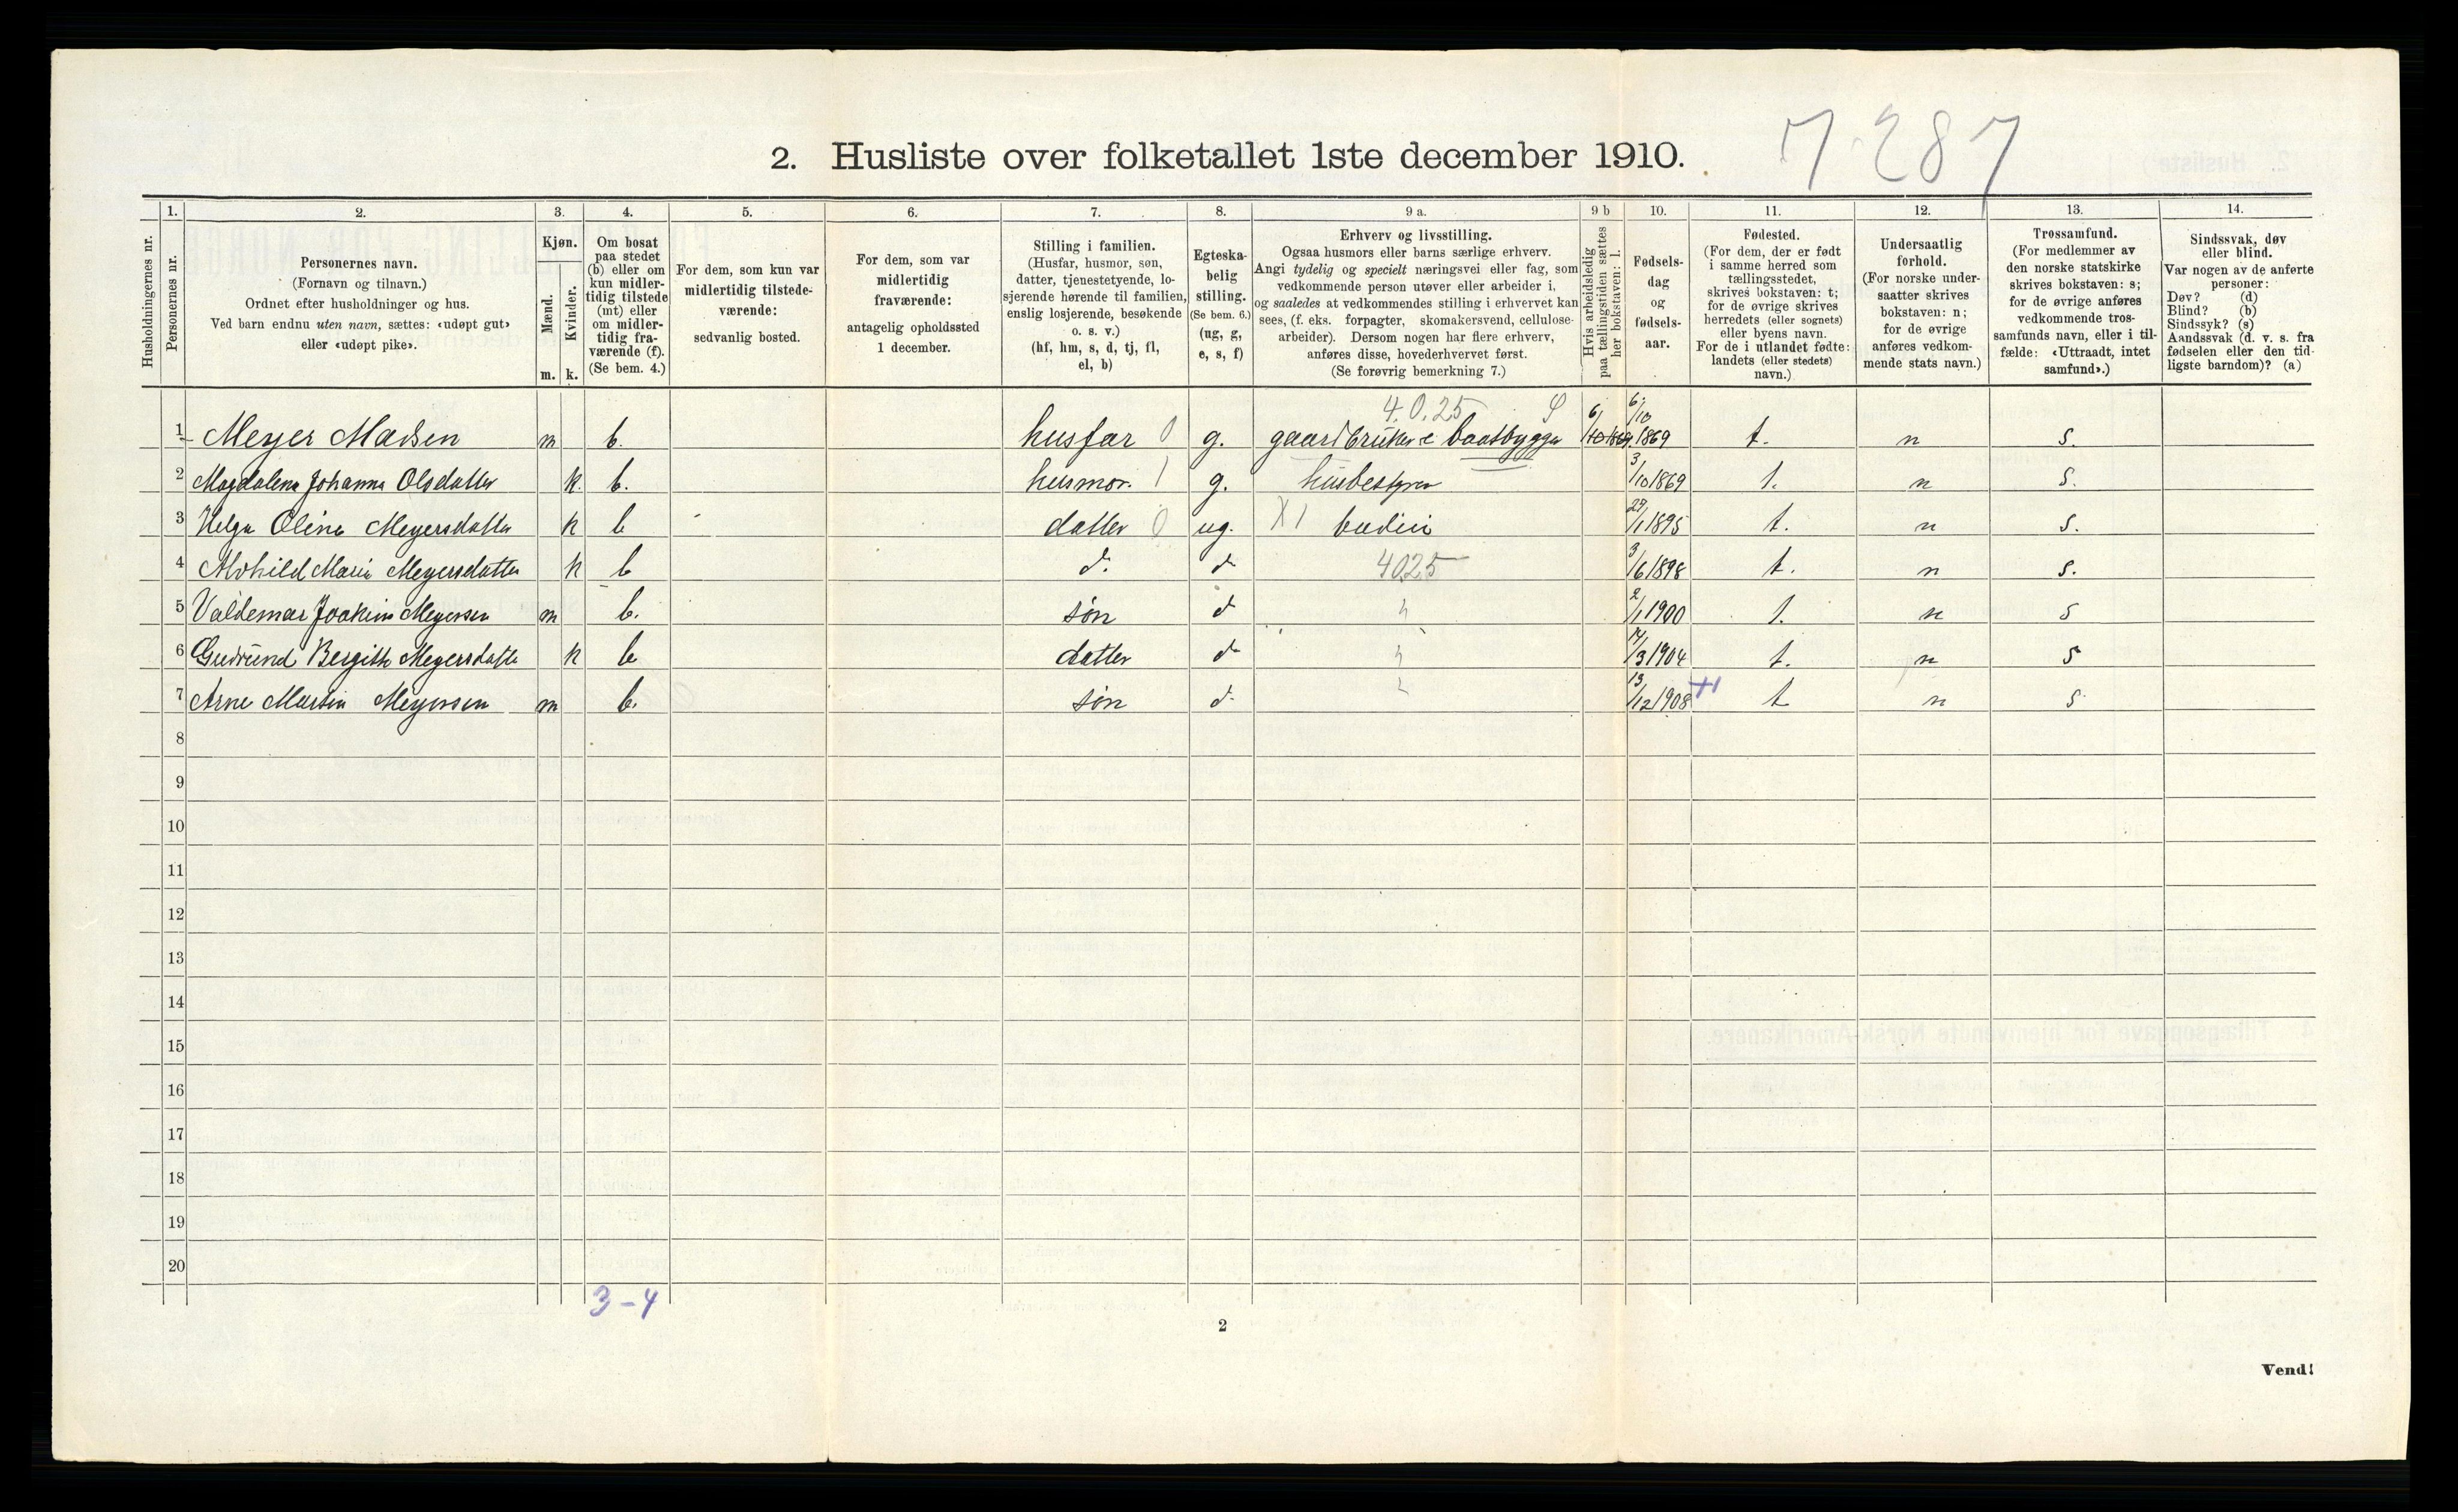 2. Husliste over folketallet 1ste december 1910.
7-287
1. 2. 3. 4. 5. 6. 7. 8. 9 a. 9 b 10. 11. 12. 13. 14.
Husholdningernes nr.
Personernes nr.
Personernes navn.
(Fornavn og tilnavn.)
Ordnet efter husholdninger og hus.
Ved barn endnu uten navn, sættes: «udøpt gut»
eller «udøpt pike».
Kjøn.
Mænd.
Kvinder.
m. k.
Om bosat
paa stedet
(b) eller om
kun midler-
tidig tilstede
(mt) eller
om midler-
tidig fra-
værende (f).
(Se bem. 4.)
For dem, som kun var
midlertidig tilstede-
værende:
sedvanlig bosted.
For dem, som var
midlertidig
fraværende:
antagelig opholdssted
1 december.
Stilling i familien.
(Husfar, husmor, søn,
datter, tjenestetyende, lo-
sjerende hørende til familien,
enslig losjerende, besøkende
o. s. v.)
(hf, hm, s, d, tj, fl,
el, b)
Egteska-
belig
stilling.
(Se bem. 6.)
(ug, g,
e, s, f)
Erhverv og livsstilling.
Ogsaa husmors eller barns særlige erhverv.
Angi tydelig og specielt næringsvei eller fag, som
vedkommende person utøver eller arbeider i,
og saaledes at vedkommendes stilling i erhvervet kan
sees, (f. eks. forpagter, skomakersvend, cellulose-
arbeider). Dersom nogen har flere erhverv,
anføres disse, hovederhvervet først.
(Se forøvrig bemerkning 7.)
Hvis arbeidsledig
paa tællingstiden sættes
her bokstaven: l.
Fødsels-
dag
og
fødsels-
aar.
Fødested.
(For dem, der er født
i samme herred som
tællingsstedet,
skrives bokstaven: t;
for de øvrige skrives
herredets (eller sognets)
eller byens navn.
For de i utlandet fødte:
landets (eller stedets)
navn.)
Undersaatlig
forhold.
(For norske under-
saatter skrives
bokstaven: n;
for de øvrige
anføres vedkom-
mende stats navn.)
Trossamfund.
(For medlemmer av
den norske statskirke
skrives bokstaven: s;
for de øvrige anføres
vedkommende tros-
samfunds navn, eller i til-
fælde: «Uttraadt, intet
samfund».)
Sindssvak, døv
eller blind.
Var nogen av de anførte
personer:
Døv? (d)
Blind? (b)
Sindssyk? (s)
Aandssvak (d. v. s. fra
fødselen eller den tid-
ligste barndom)? (a)
4.0.25
1 Meyer Madsen m b. husfar 0 g. gaardbruker e baatbygger 6/10 1869 t. n s.
2 Magdalena Johanna Olsdatter k. b. husmor. 1 g. husbestyrer 3/10 1869 t. n s.
3 Helga Oline Meyersdatter k b datter 0 ug. X1 budeie 29/1 1895 t. n s.
4 Alvhild Marie Meyersdatter k b d. d 4025 9/6 1898 t. n s.
5 Valdemar Joakim Meyersen m b. søn d 2/1 1900 t. n s
6 Gudrund Bergith Meyersdatte k b datter d 14/3 1904 t. n s
7 Arne Martin Meyersen m b. søn d 13/12 1908 t n s
8
9
10
11
12
13
14
15
16
17
18
19
20
3-4
2
Vend!